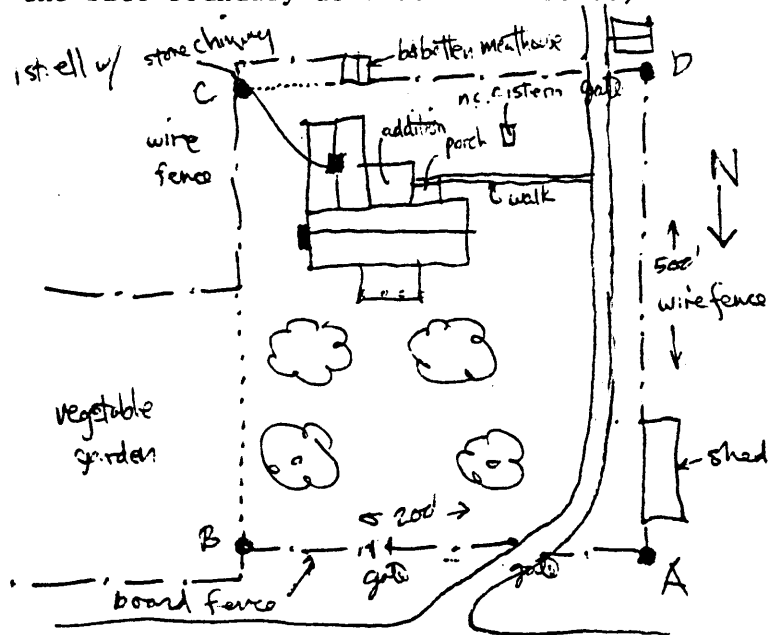 1st. ell w/ stone chimney
b&batten meathouse
C
D
n.c. cistern
gate
wire
fence
addition
porch
walk
N
500'
wire fence
vegetable
garden
shed
200'
B
gate
gate
A
board fence